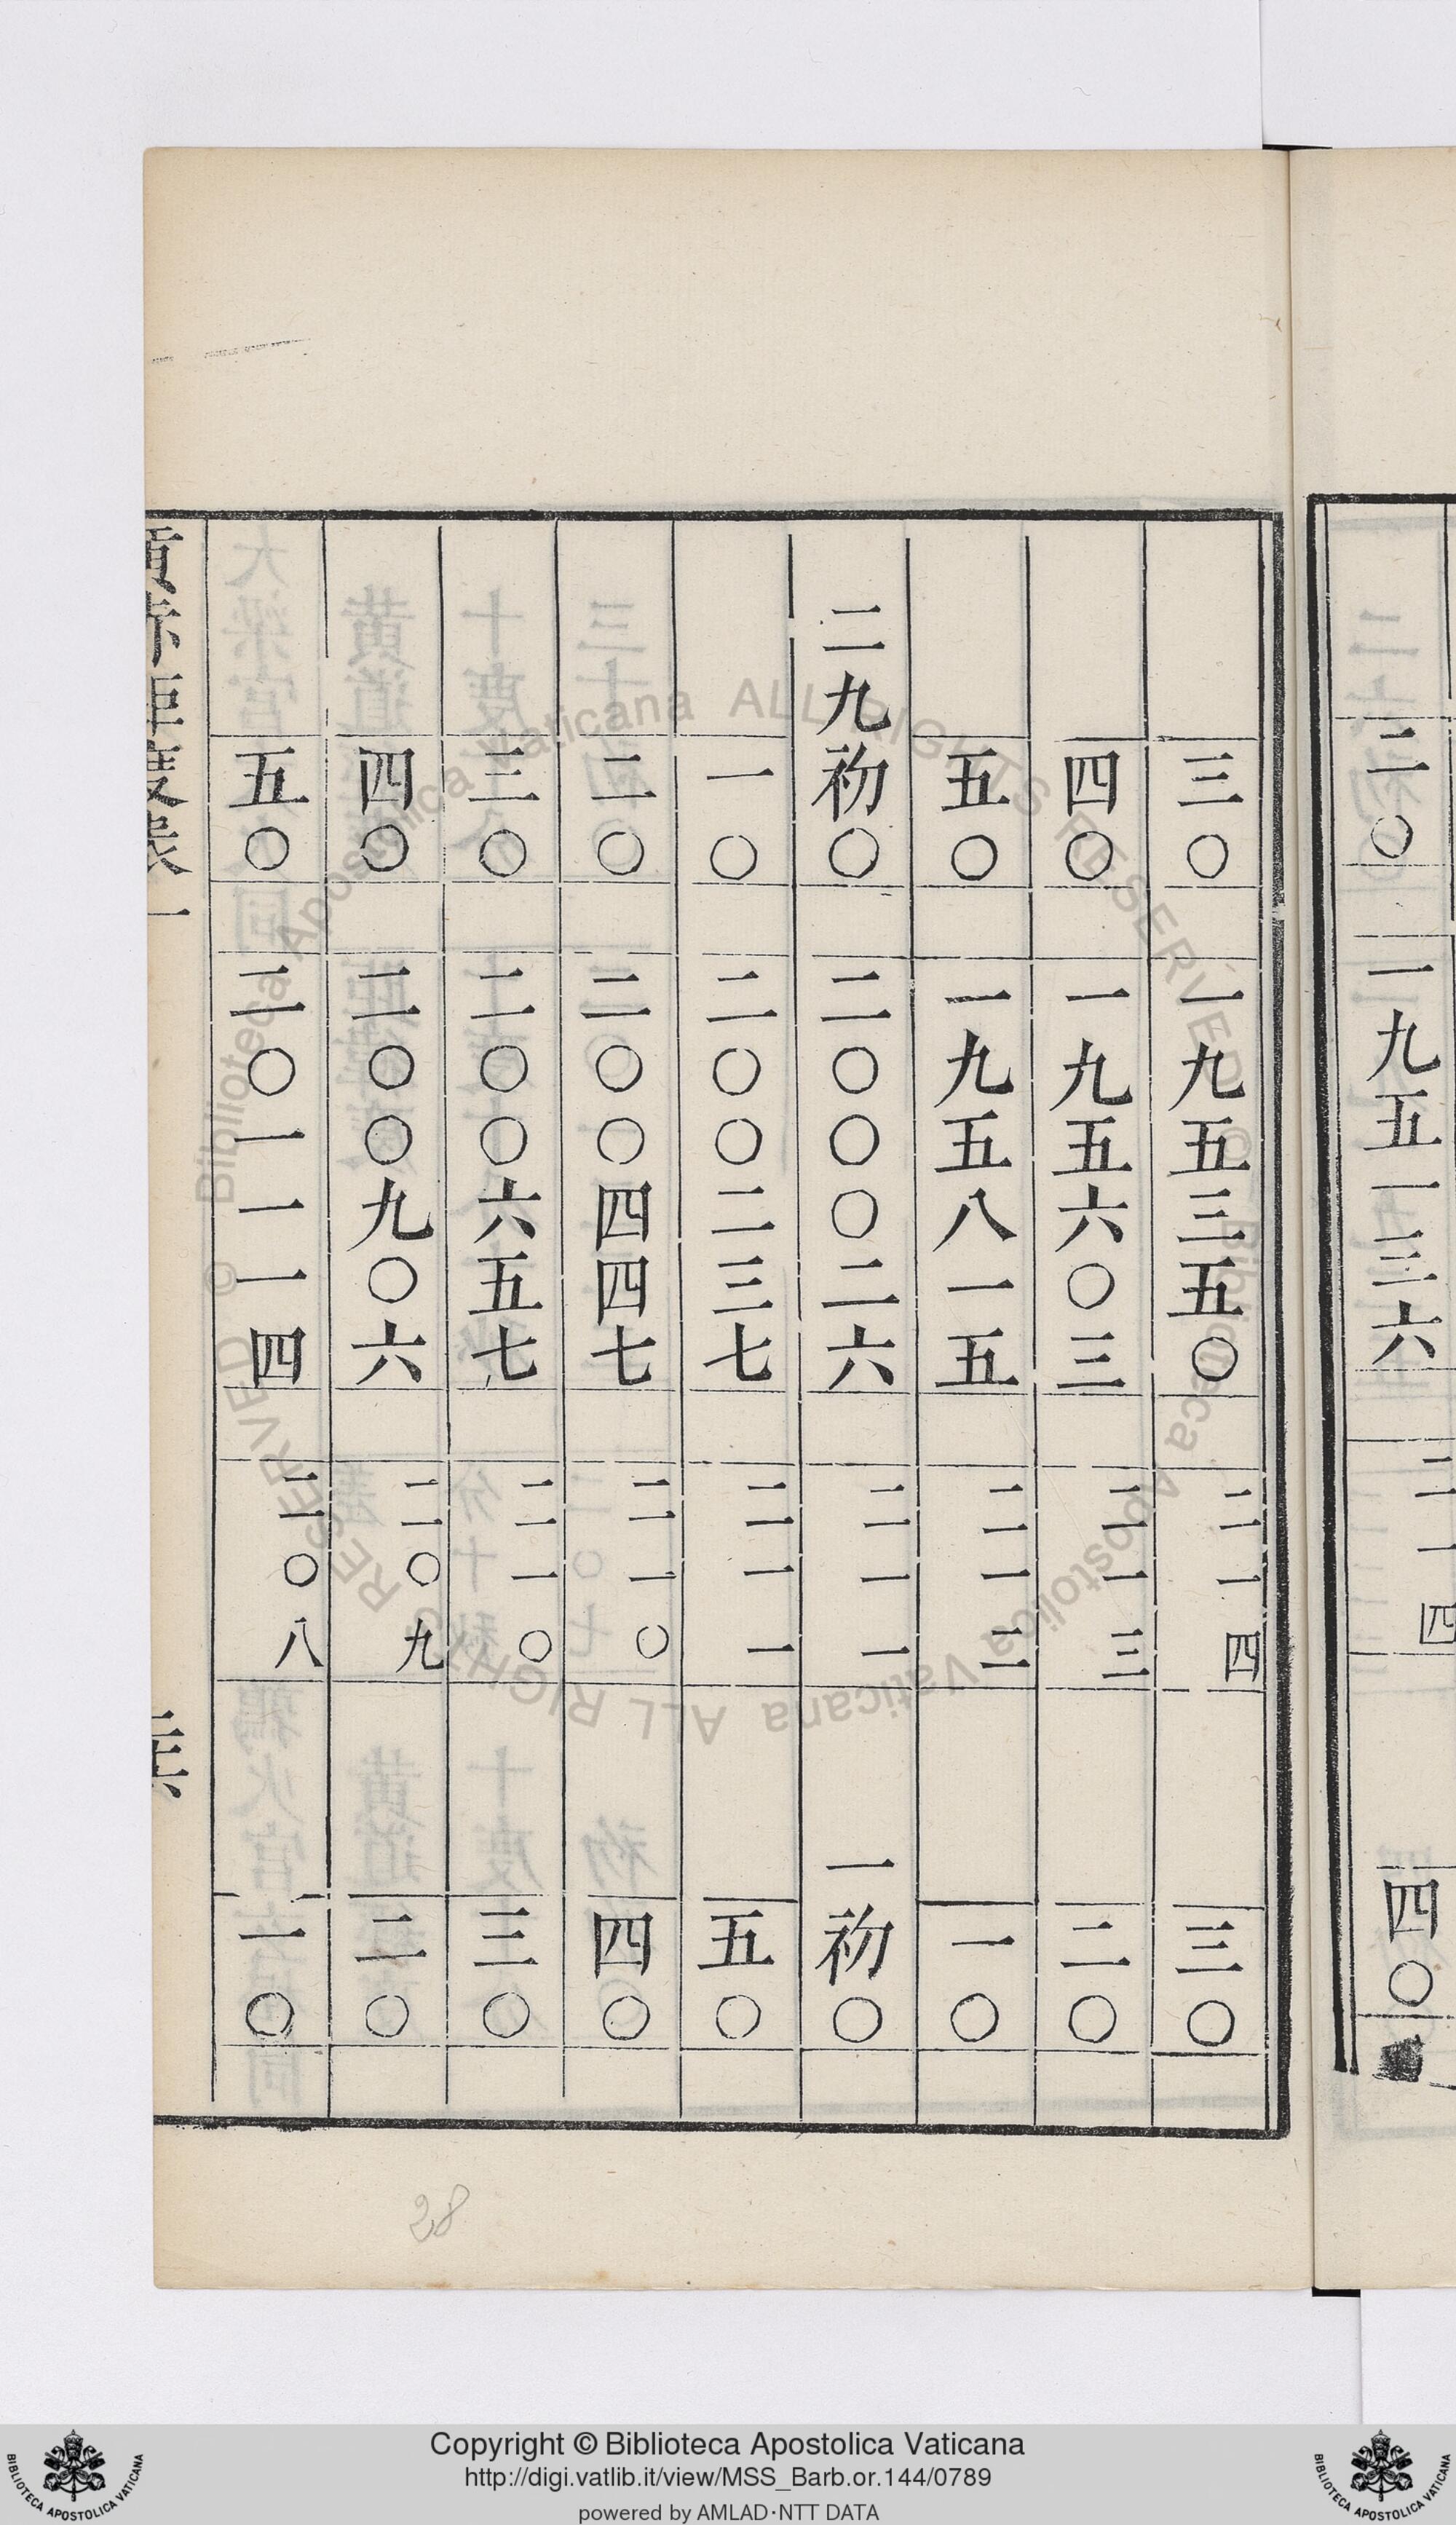 二〇 一九五一三六 二一四 四〇
三〇 一九五三五〇 二一四 三〇
四〇 一九五六〇三 二一三 二〇
五〇 一九五八一五 二一二 一〇
二九初〇 二〇〇〇二六 二一一 一初〇
一〇 二〇〇二三七 二一一 五〇
二〇 二〇〇四四七 二一〇 四〇
三〇 二〇〇六五七 二一〇 三〇
四〇 二〇〇九〇六 二〇九 二〇
五〇 二〇一一一四 二〇八 一〇
黃赤距度表 一
28
Copyright © Biblioteca Apostolica Vaticana
http://digi.vatlib.it/view/MSS_Barb.or.144/0789
powered by AMLAD·NTT DATA
BIBLIOTECA APOSTOLICA VATICANA
BIBLIOTECA APOSTOLICA VATICANA
© Biblioteca Apostolica Vaticana ALL RIGHTS RESERVED © Biblioteca Apostolica Vaticana ALL RIGHTS RESERVED